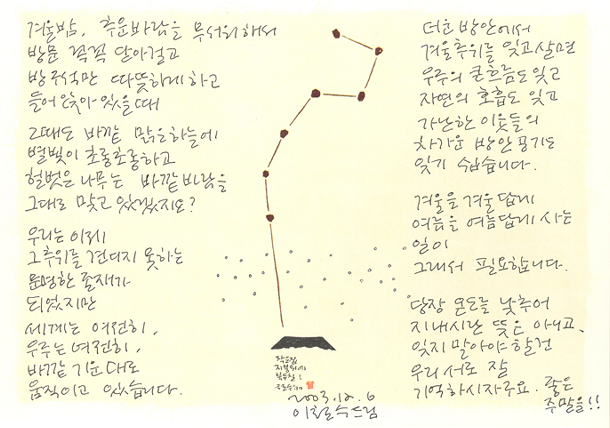 겨울밤, 추운바람을 무서워해서
방문 꼭꼭 닫아걸고
방구석만 따뜻하게하고
들어앉아 있을때
그때도 바깥 맑은하늘에
별빛이 초롱초롱하고
헐벗은 나무는 바깥바람을
그대로 맞고 있겠지요?
우리는 이제
그추위를 견디지 못하는
문명한 존재가
되었지만
세계는 여전히,
우주는 여전히,
바깥 기운대로
움직이고 있습니다.
더운 방안에서
겨울추위를 잊고살면
우주의 큰흐름도잊고
자연의 호흡도 잊고
가난한 이웃들의
차가운 방안공기도
잊기 쉽습니다.
겨울을 겨울답게
여름을 여름답게 사는
일이
그래서 필요합니다.
당장 온도를 낮추어
지내시란 뜻은 아니고,
잊지 말아야할건
우리 서로 잘
기억하시자구요. 좋은
주말을!!
2003.12.6
이철수드림